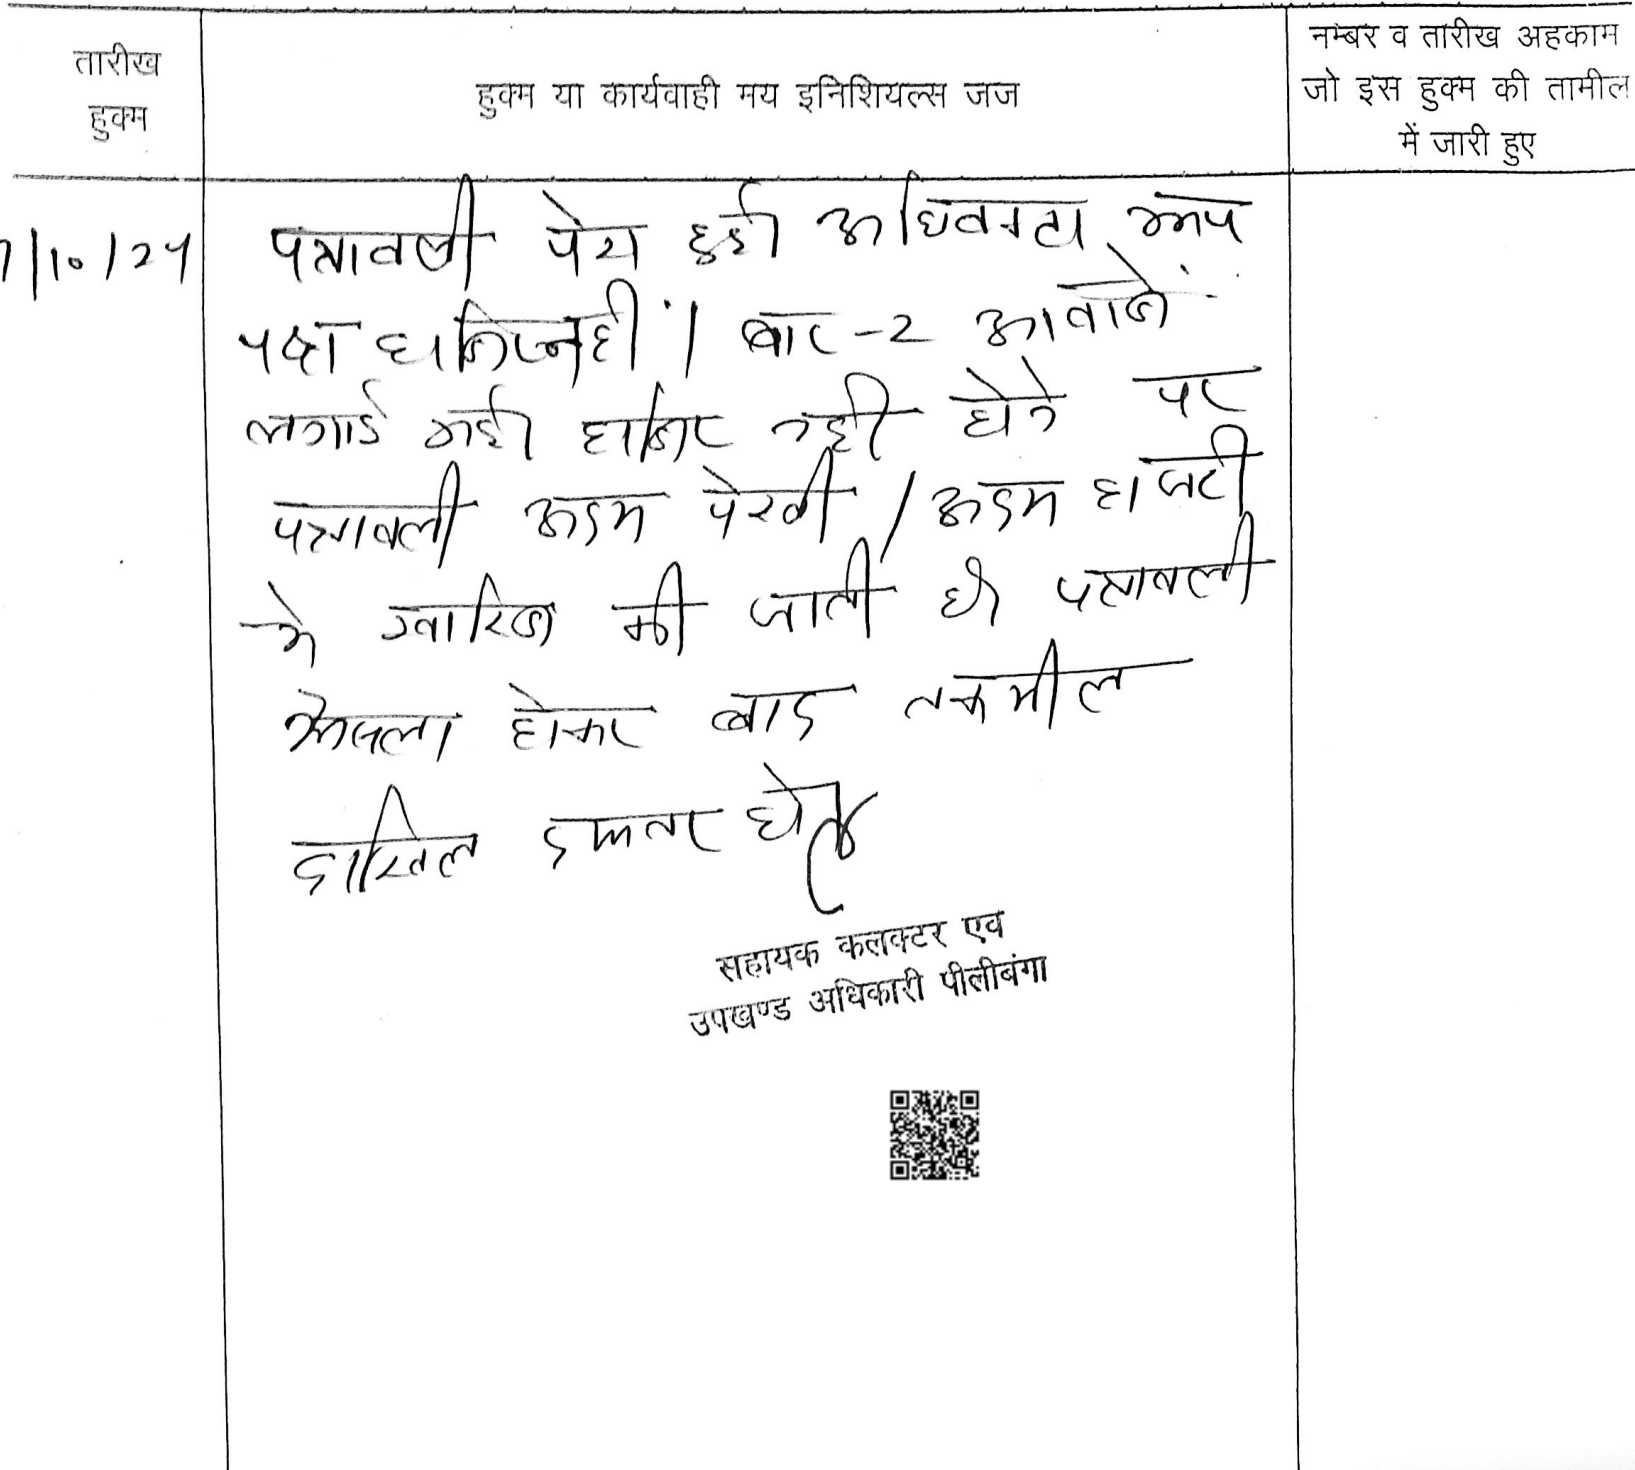 तारीख
हुक्म
हुक्म या कार्यवाही मय इनिशियल्स जज
नम्बर व तारीख अहकाम
जो इस हुक्म की तामील
में जारी हुए
पत्रावली पेश हुई अधिवक्ता मय
पक्ष हाजिर नहीं। बार-2 आवाजें
लगाई गई हाजिर नही होने पर
पत्रावली अदम पेरवी / अदम हाजरी
मे खारिज की जाती है पत्रावली
फैसला होकर बाद तकमील
दाखिल दफ्तर
सहायक कलक्टर एव
उपखण्ड अधिकारी पीलीबंगा